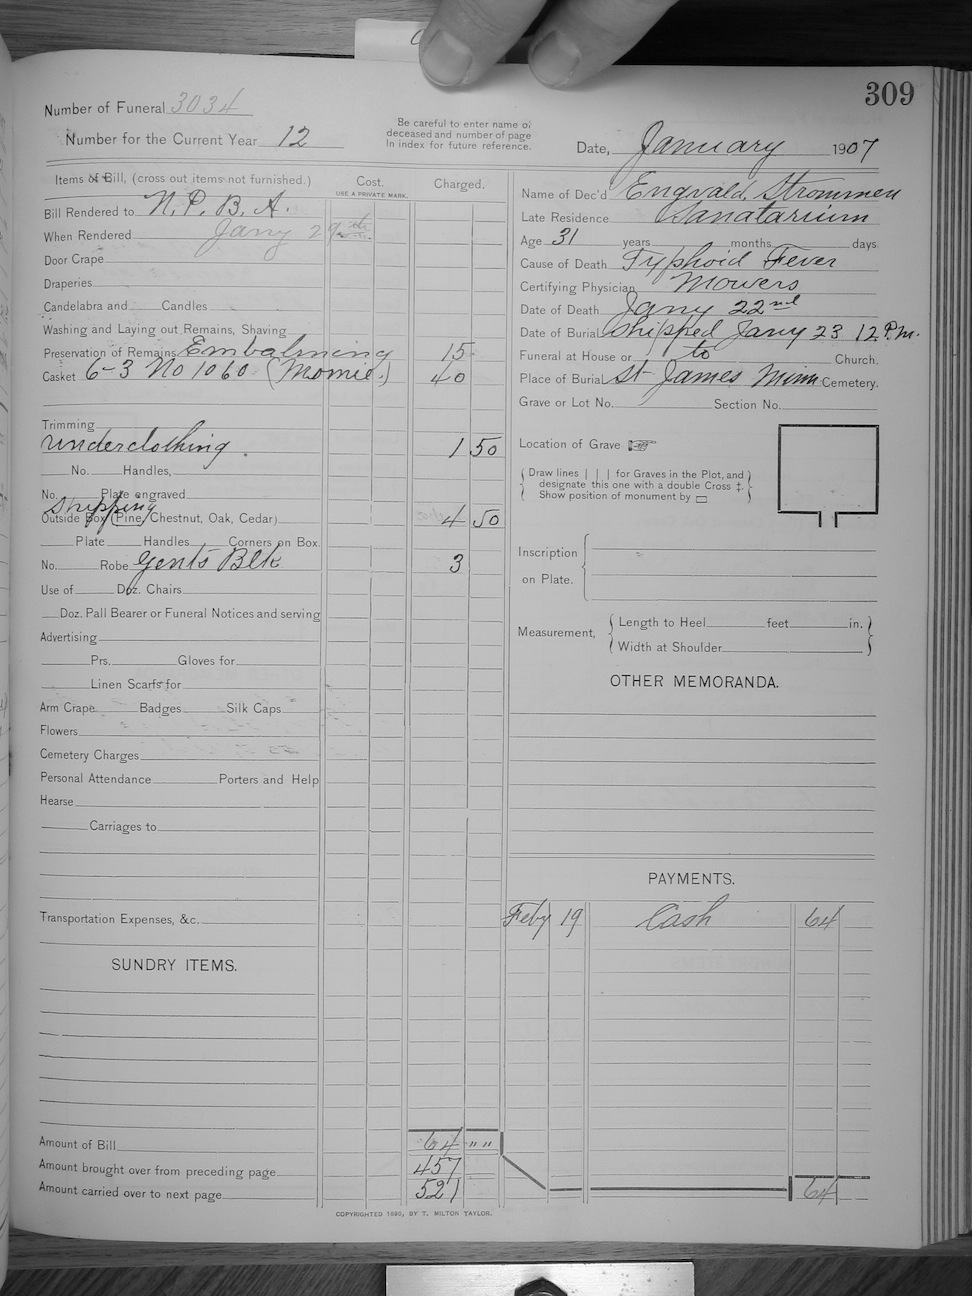 309
Number of Funeral 3034
Number for the Current Year 12
Be careful to enter name of
deceased and number of page
In index for future reference.
Date, January 1907
Items of Bill, (cross out items not furnished.)
Cost.
USE A PRIVATE MARK.
Charged.
Bill Rendered to N. P. B. A.
When Rendered Jany 29
Door Crape
Draperies
Candelabra and Candles
Washing and Laying out Remains, Shaving
Preservation of Remains Embalming 15
Casket 6-3 No 1060 40
Trimming
Underclothing. 1 50
No. Handles,
No. Plate engraved
Shipping
Outside Box (Pine, Chestnut, Oak, Cedar) 4 50
Plate Handles Corners on Box.
No. Robe Gents Blk 3
Use of Doz. Chairs
Doz. Pall Bearer or Funeral Notices and serving
Advertising
Prs. Gloves for
Linen Scarfs for
Arm Crape Badges Silk Caps
Flowers
Cemetery Charges
Personal Attendance Porters and Help
Hearse
Carriages to
Transportation Expenses, &c.
SUNDRY ITEMS.
Amount of Bill 64 " "
Amount brought over from preceding page 457
Amount carried over to next page 521
Name of Dec'd Engvald Strommen
Late Residence Sanatarium
Age 31 years months days
Cause of Death Typhoid Fever
Certifying Physician Mowers
Date of Death Jany 22nd
Date of Burial Shipped Jany 23 12 P.m.
Funeral at House or to Church.
Place of Burial St James Minn Cemetery.
Grave or Lot No. Section No.
Location of Grave
Draw lines | | | for Graves in the Plot, and
designate this one with a double Cross ‡.
Show position of monument by ▭
Inscription
on Plate.
Measurement,
Length to Heel feet in.
Width at Shoulder
OTHER MEMORANDA.
PAYMENTS.
Feby 19 Cash 64
64
COPYRIGHTED 1890, BY T. MILTON TAYLOR.